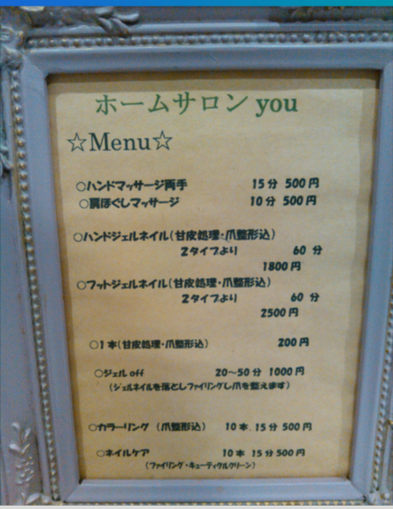 ホームサロン you
☆Menu☆
○ハンドマッサージ両手 15分 500円
○肩ほぐしマッサージ 10分 500円
○ハンドジェルネイル(甘皮処理・爪整形込)
2タイプより 60分
1800円
○フットジェルネイル(甘皮処理・爪整形込)
2タイプより 60分
2500円
○1本(甘皮処理・爪整形込) 200円
○ジェルoff 20〜50分 1000円
(ジェルネイルを落としファイリングし爪を整えます)
○カラーリング (爪整形込) 10本 15分 500円
○ネイルケア 10本 15分 500円
(ファイリング・キューティクルクリーン)